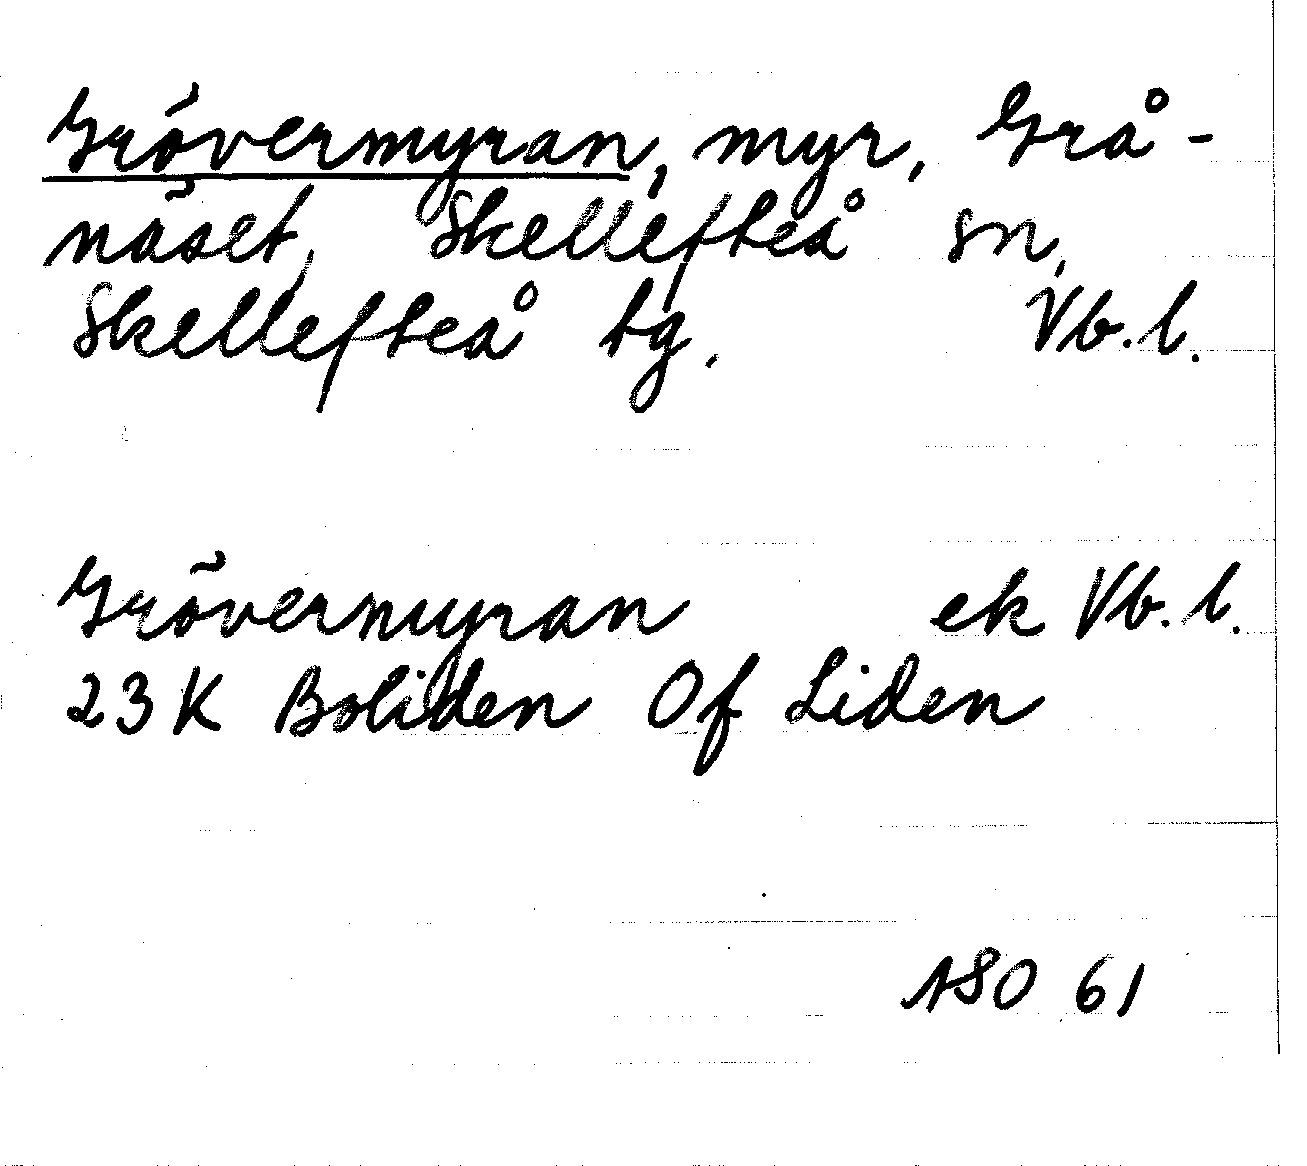 Grövermyran, myr, Grå-
näset, Skellefteå sn,
Skellefteå tg. Vb.l.
Grövermyran ek Vb.l.
23K Boliden Of Liden
ASO 61